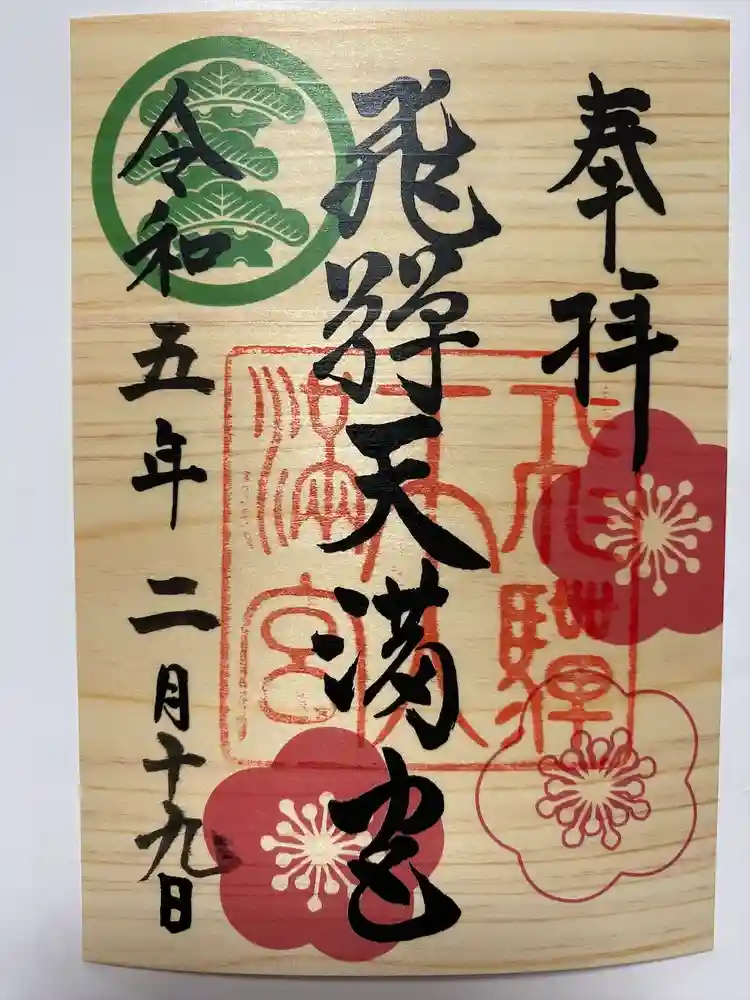 奉拝
飛騨天満宮
飛騨天満宮
令和五年二月十九日